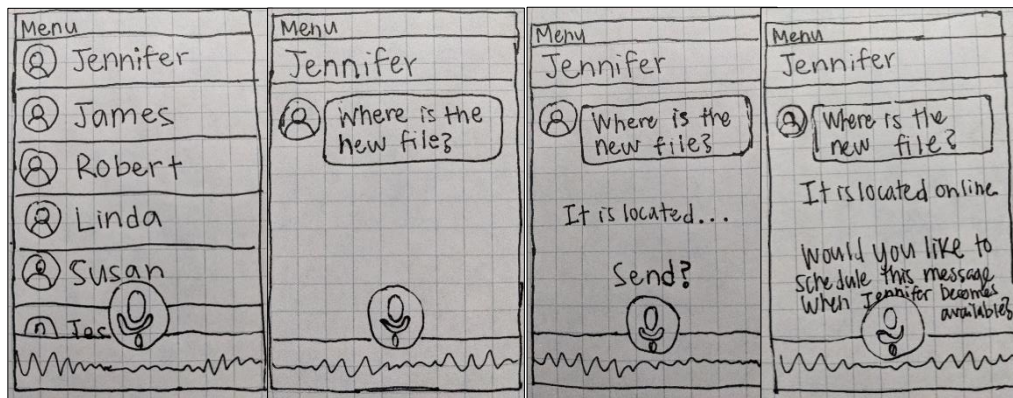 Menu
Jennifer
James
Robert
Linda
Susan
Menu
Jennifer
Where is the
new file?
Menu
Jennifer
Where is the
new file?
It is located...
Send?
Menu
Jennifer
Where is the
new file?
It is located online
Would you like to
schedule this message
when Jennifer becomes
available?